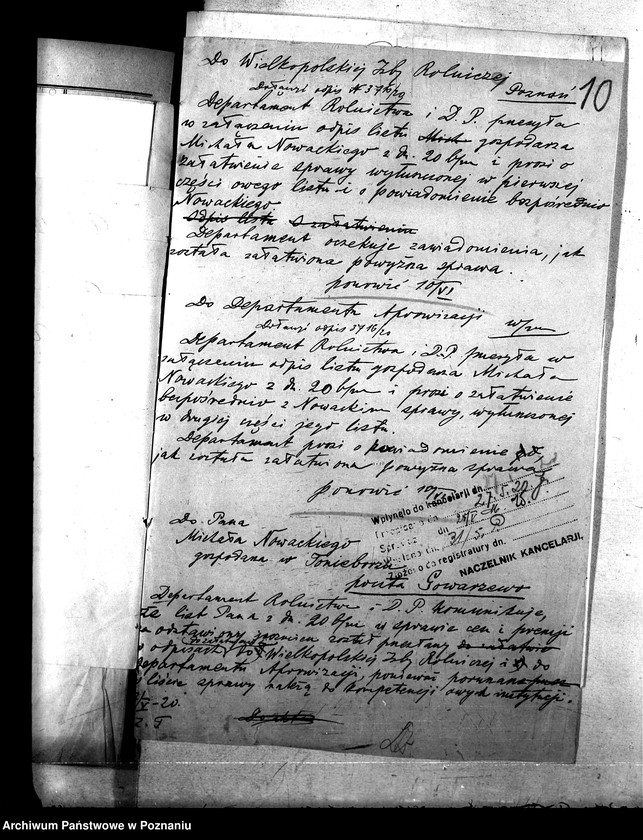 Do Wielkopolskiej Izby Rolniczej
Poznań 10
Dołącz. odpis N 3716/20
Departament Rolnictwa i D.P. przesyła
w załączeniu odpis listu gospodarza
Michała Nowackiego z dn. 20 bm i prosi o
załatwienie sprawy wyłuszczonej w pierwszej
części owego listu i o powiadomienie bezpośrednio
Nowackiego.
odpis listu o załatwieniu
Departament oczekuje zawiadomienia, jak
została załatwiona powyższa sprawa.
ponowić 10/VI
Do Departamentu Aprowizacji
w/m
odpis 3716/20
Departament Rolnictwa i D.P. przesyła w
załączeniu odpis listu gospodarza Michała
Nowackiego z dn. 20 bm i prosi o załatwienie
bezpośrednio z Nowackim sprawy, wyłuszczonej
w drugiej części jego listu.
Departament prosi o powiadomienie
jak została załatwiona powyższa sprawa
ponowić
Wpłynęło do kancelarji dn. 27.5.20
dn.
dn. 31/5.
Złożono do registratury dn.
NACZELNIK KANCELARJI,
Do Pana
Michała Nowackiego
gospodarza w
poczta Gowarzewo
Departament Rolnictwa i D.P. komunikuje,
że list Pana z dn. 20 bm w sprawie cen i premji
został przesłany
w odpisach do Wielkopolskiej Izby Rolniczej i do
Departamentu Aprowizacji, ponieważ
w liście sprawy należą do kompetencji owych instytucji.
Archiwum Państwowe w Poznaniu